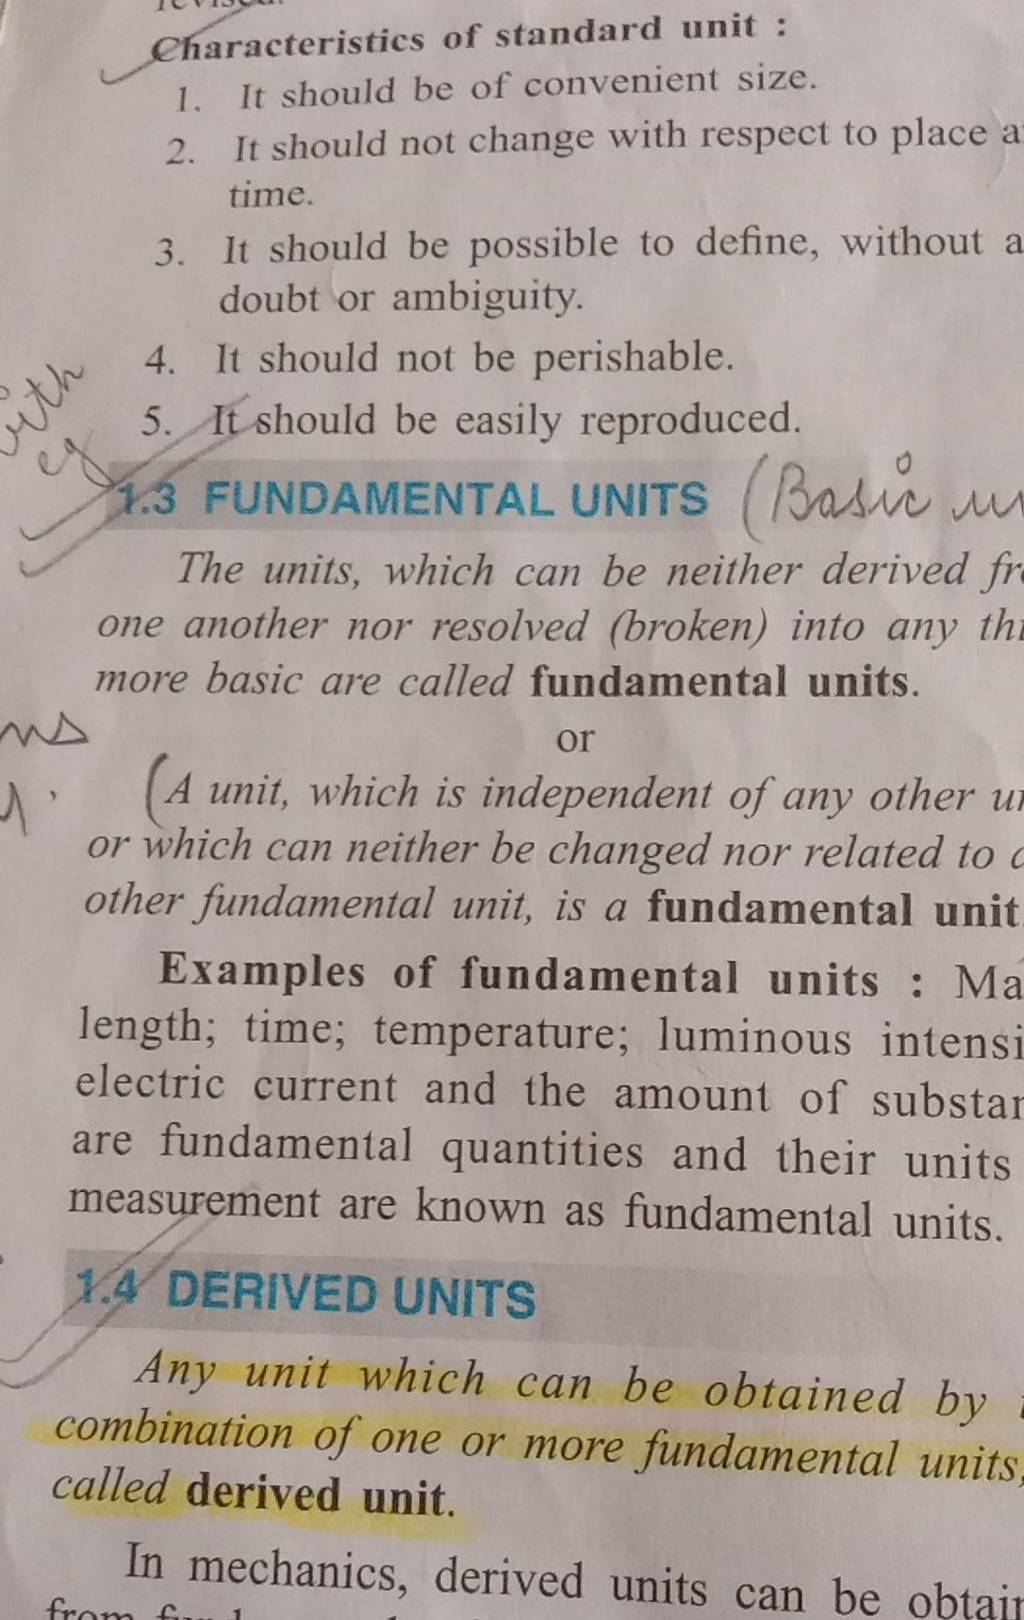 Characteristics of standard unit :
1. It should be of convenient size.
2. It should not change with respect to place
time.
3. It should be possible to define, without
doubt or ambiguity.
4. It should not be perishable.
with
5. It should be easily reproduced.
eg
1.3 FUNDAMENTAL UNITS (Basic
The units, which can be neither derived
one another nor resolved (broken) into any
more basic are called fundamental units.
or
(A unit, which is independent of any other
or which can neither be changed nor related to
other fundamental unit, is a fundamental unit
Examples of fundamental units :
length; time; temperature; luminous
electric current and the amount of
are fundamental quantities and their units
measurement are known as fundamental units.
1.4 DERIVED UNITS
Any unit which can be obtained by
combination of one or more fundamental units,
called derived unit.
In mechanics, derived units can be
from